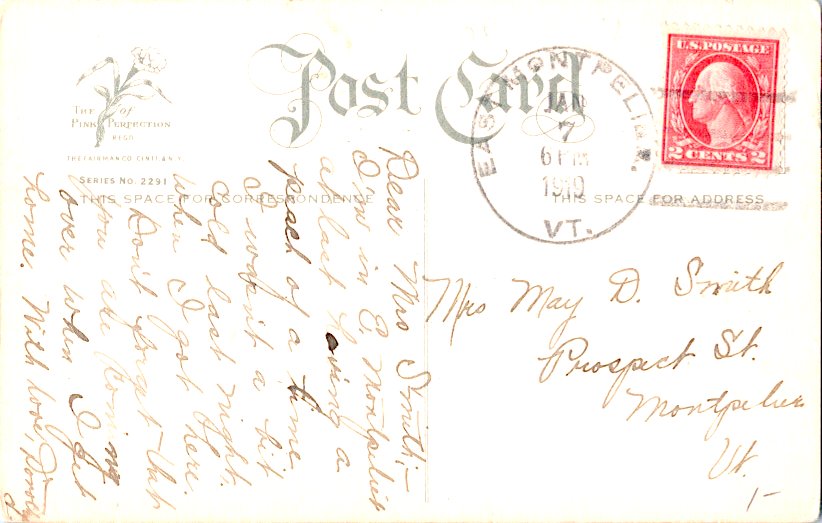 Post Card
The Pink of Perfection
REGD.
THE FAIRMAN CO. CINTI & N.Y.
SERIES No. 2291
THIS SPACE FOR CORRESPONDENCE
THIS SPACE FOR ADDRESS
EAST MONTPELIER
JAN
7
6 PM
1919
VT.
U.S. POSTAGE
2 CENTS 2
Dear Mrs Smith;-
I'm in E. Montpelier
at last having a
peach of a time.
I wasn't a bit
cold last night.
when I got here.
Don't forget that
you are coming
over when I get
home. With love,
Mrs May D. Smith
Prospect St.
Montpelier
Vt.